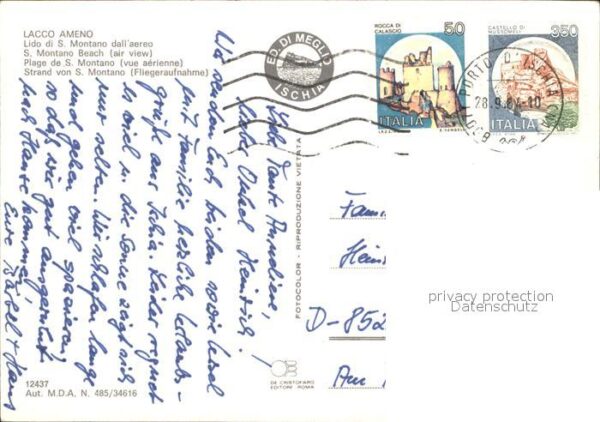 LACCO AMENO
Lido di S. Montano dall'aereo
S. Montano Beach (air view)
Plage de S. Montano (vue aérienne)
Strand von S. Montano (Fliegeraufnahme)
ED. DI MEGLIO
ISCHIA
ROCCA DI
CALASCIO
50
ITALIA
CASTELLO DI
MUSSOMELI
350
ITALIA
PORTO D'ISCHIA
28.9.84-10
Liebe Tante Anneliese,
lieber Onkel Heinrich!
Wir senden Euch beiden sowie Ursel
mit Familie herzliche Urlaubs-
grüße aus Ischia. Leider regnet
es viel u. die Sonne zeigt sich
nur selten. Wir schlafen lange
und gehen viel spazieren,
so daß wir gut ausgeruht
nach Hause kommen.
Eure Bärbel + Hans
FOTOCOLOR - RIPRODUZIONE VIETATA
Fami
Hein
D-852
Am
privacy protection
Datenschutz
DE CRISTOFARO
EDITORE ROMA
12437
Aut. M.D.A. N. 485/34616